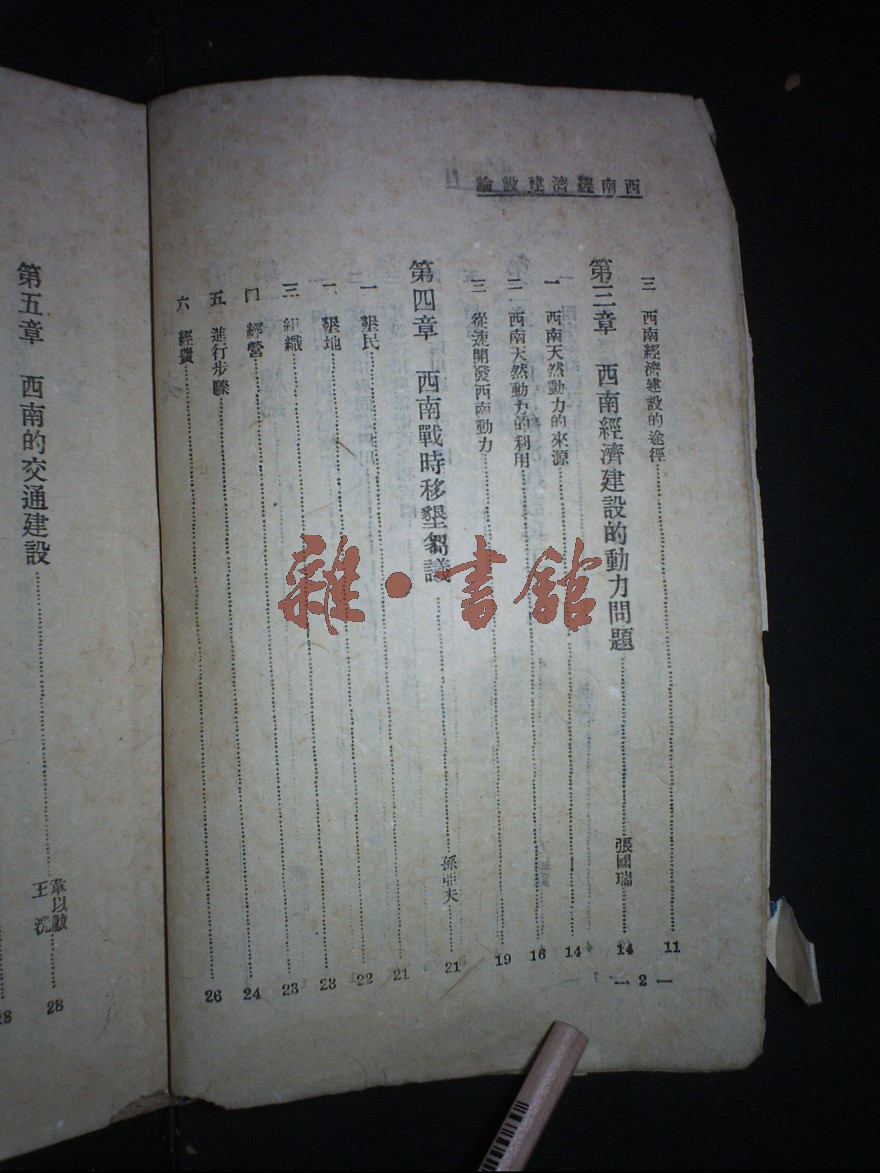 西南經濟建設論
三 西南經濟建設的途徑 11
第三章 西南經濟建設的動力問題 張國瑞 14
一 西南天然動力的來源 14
二 西南天然動力的利用 16
三 從速開發西南動力 19
第四章 西南戰時移墾芻議 孫亞夫 21
一 墾民 21
二 墾地 22
三 組織 23
四 經營 23
五 進行步驟 24
六 經費 26
— 2 —
第五章 西南的交通建設 韋以黻 王洸 28
雜·書館